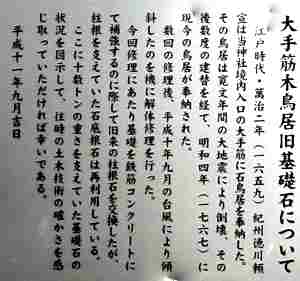 大手筋木鳥居旧基礎石について
江戸時代・萬治二年（一六五九）紀州徳川頼
宣は当神社境内入口の大手筋に石鳥居を奉納した。
その鳥居は寛文年間の大地震により倒壊、その
後数度の建替を経て、明和四年（一七六七）に
現今の鳥居が奉納された。
数回の修理後、平成十年九月の台風により傾
斜したのを機に解体修理を行った。
今回修理にあたり基礎を鉄筋コンクリートに
て補強するのに際して旧来の柱根石を交換したが、
柱根を支えていた石底根石は再利用している。
ここに十数トンの重さを支えていた基礎石の
状況を図示して、往時の土木技術の確かさを感
じ取っていただければ幸いである。
平成十一年九月吉日